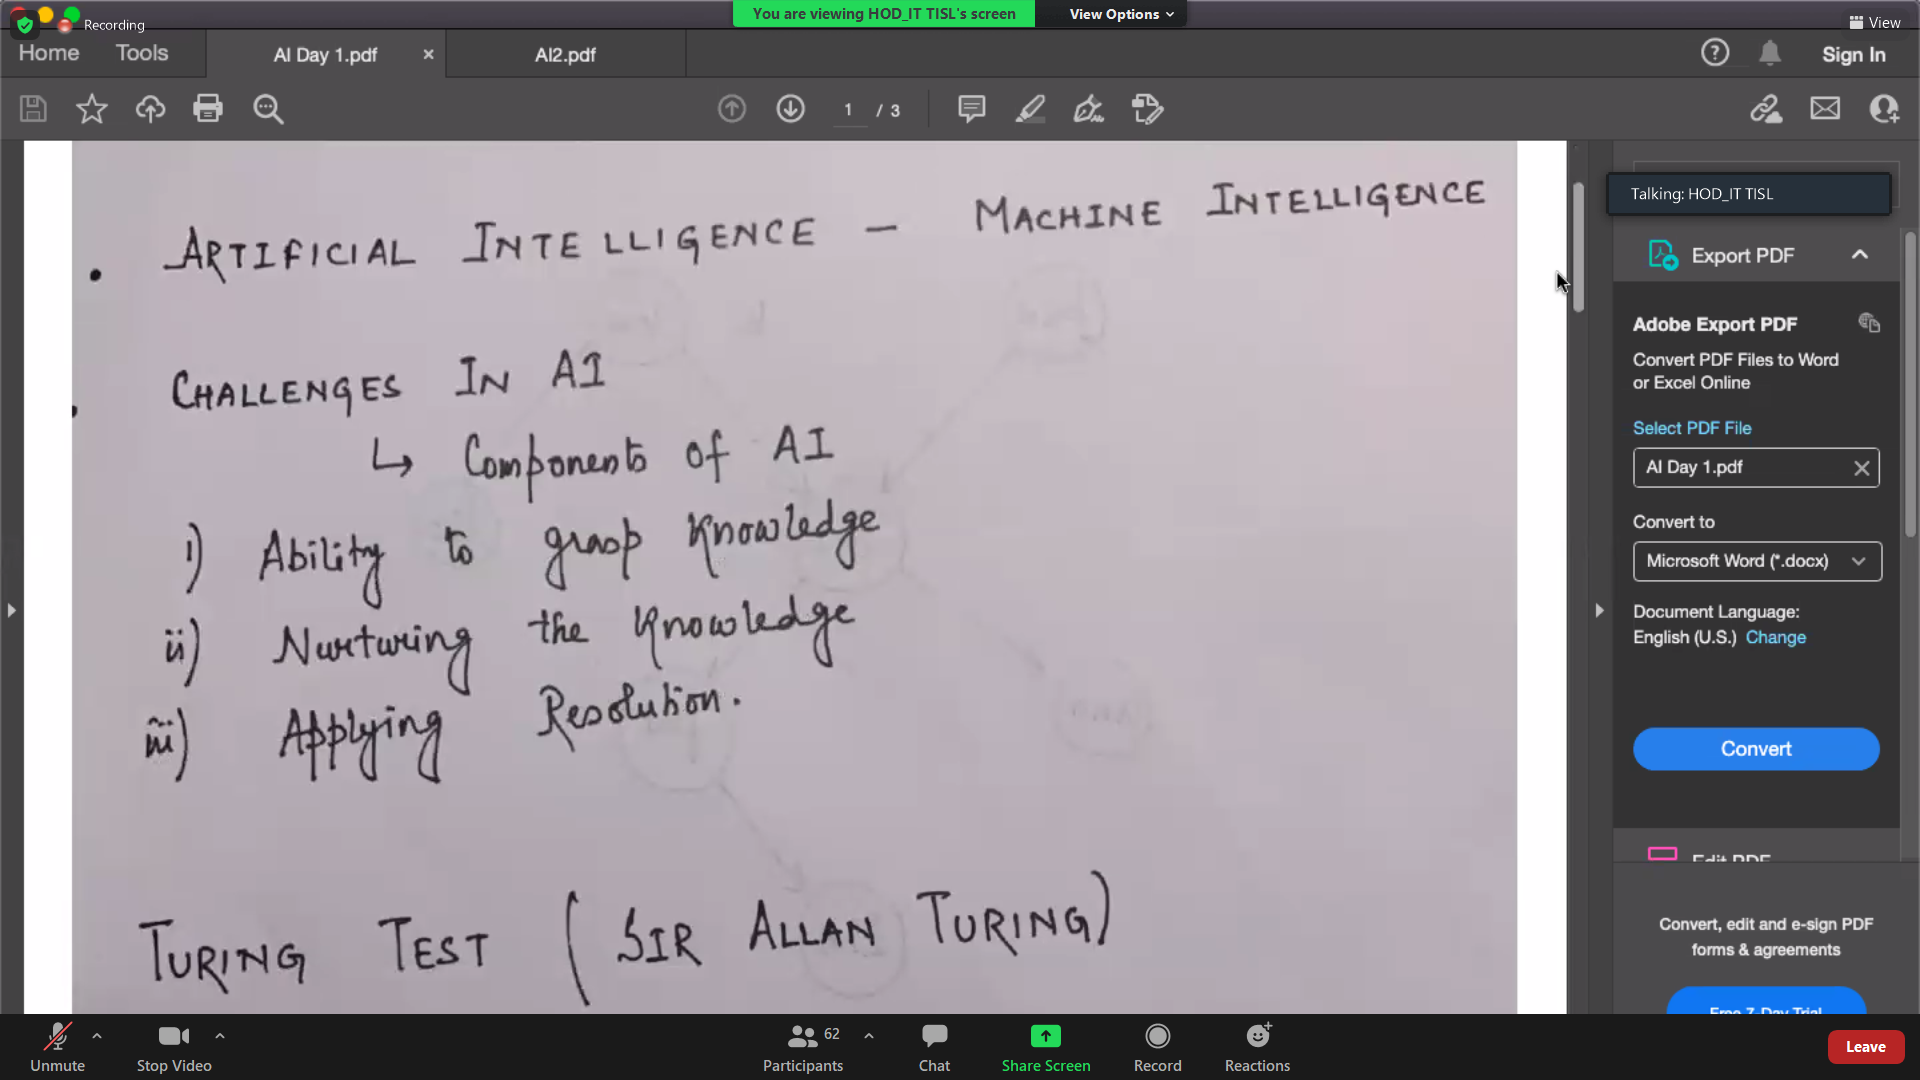 Recording
You are viewing HOD_IT TISL's screen
View Options
View
Home
Tools
AI Day 1.pdf
AI2.pdf
Sign In
1 / 3
Talking: HOD_IT TISL
ARTIFICIAL INTELLIGENCE - MACHINE INTELLIGENCE
CHALLENGES IN AI
↳ Components of AI
i) Ability to grasp Knowledge
ii) Nurturing the Knowledge
iii) Applying Resolution.
TURING TEST (SIR ALLAN TURING)
Export PDF
Adobe Export PDF
Convert PDF Files to Word
or Excel Online
Select PDF File
AI Day 1.pdf
Convert to
Microsoft Word (*.docx)
Document Language:
English (U.S.) Change
Convert
Edit PDF
Convert, edit and e-sign PDF
forms & agreements
Free 7-Day Trial
Unmute
Stop Video
62
Participants
Chat
Share Screen
Record
Reactions
Leave